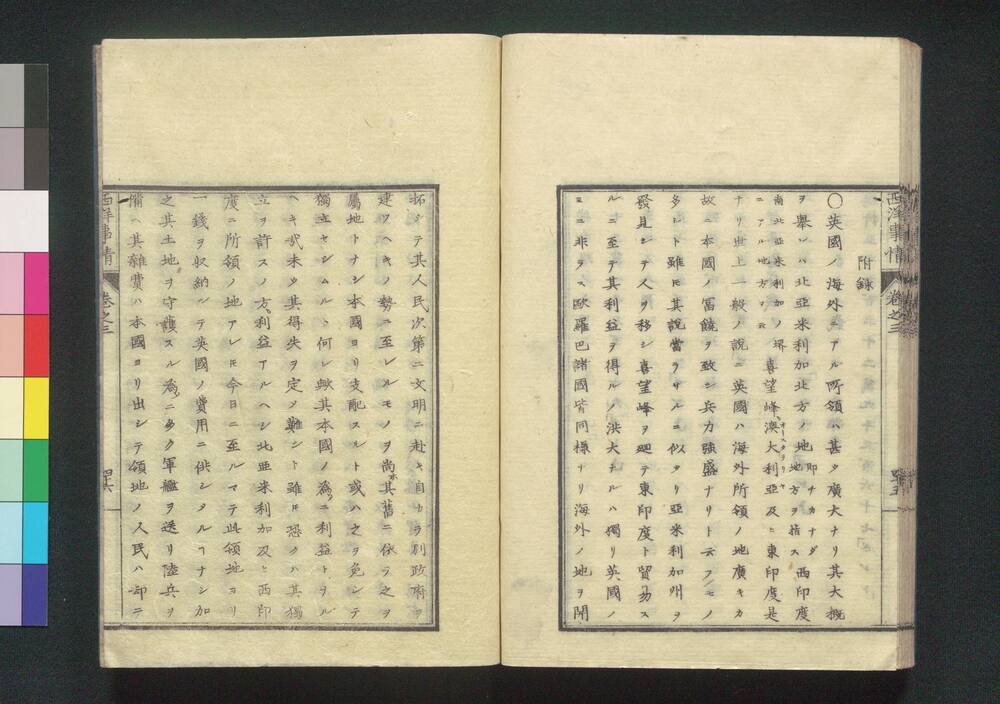 西洋事情 卷之三
附録
〇英國ノ海外ニアル所領ハ甚タ廣大ナリ其大概
ヲ舉レハ北亞米利加北方ノ地即チカナダ地方ヲ指ス西印度
南北亞米利加ノ堺ニアル地方ヲ云喜望峰澳大利亞及ヒ東印度是
ナリ世上一般ノ説ニ英國ハ海外所領ノ地廣キカ
故ニ本國ノ富饒ヲ致シ兵力強盛ナリト云フモノ
多シト雖ㇳモ其說當ラサルニ似タリ亞米利加州ヲ
發見シテ人ヲ移シ喜望峰ヲ廻テ東印度ト貿易ス
ルニ至テ其利益ヲ得ルノ洪大ナルハ獨リ英國ノ
ミニ非ラス歐羅巴諸國皆同様ナリ海外ノ地ヲ開
拓シテ其人民次第ニ文明ニ赴キ自カラ別政府ヲ
建ツヘキノ勢ニ至レルモノヲ尚其舊ニ依テ之ヲ
屬地トナシ本國ヨリ支配スルト或ハ之ヲ免シテ
獨立セシムルト何レ歟其本國ノ為メニ利益トナル
ヘキ哉未タ其得失ヲ定メ難シト雖ㇳモ恐クハ其獨
立ヲ許スノ方利益アルヘシ北亞米利加及ヒ西印
度ニ所領ノ地アレㇳモ今日ニ至ルマテ此領地ヨリ
一錢ヲ収納シテ英國ノ費用ニ供シタルヿナシ加
之其土地ヲ守護スル為メニ多ク軍艦ヲ送リ陸兵ヲ
備へ其雜費ハ本國ヨリ出シテ領地ノ人民ハ却ニ
西洋事情 卷之三